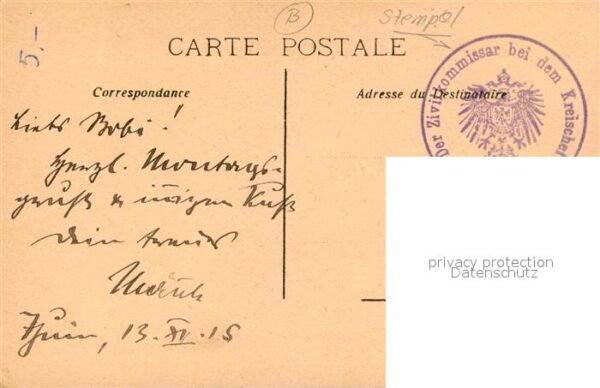 5,-
B
Stempel
CARTE POSTALE
Correspondance
Adresse du Destinataire
Der Zivilkommissar bei dem Kreischef
Liebs Bobi!
Herzl. Montags-
gruß & innigen Kuß
Dein
13. XI. 15
privacy protection
Datenschutz